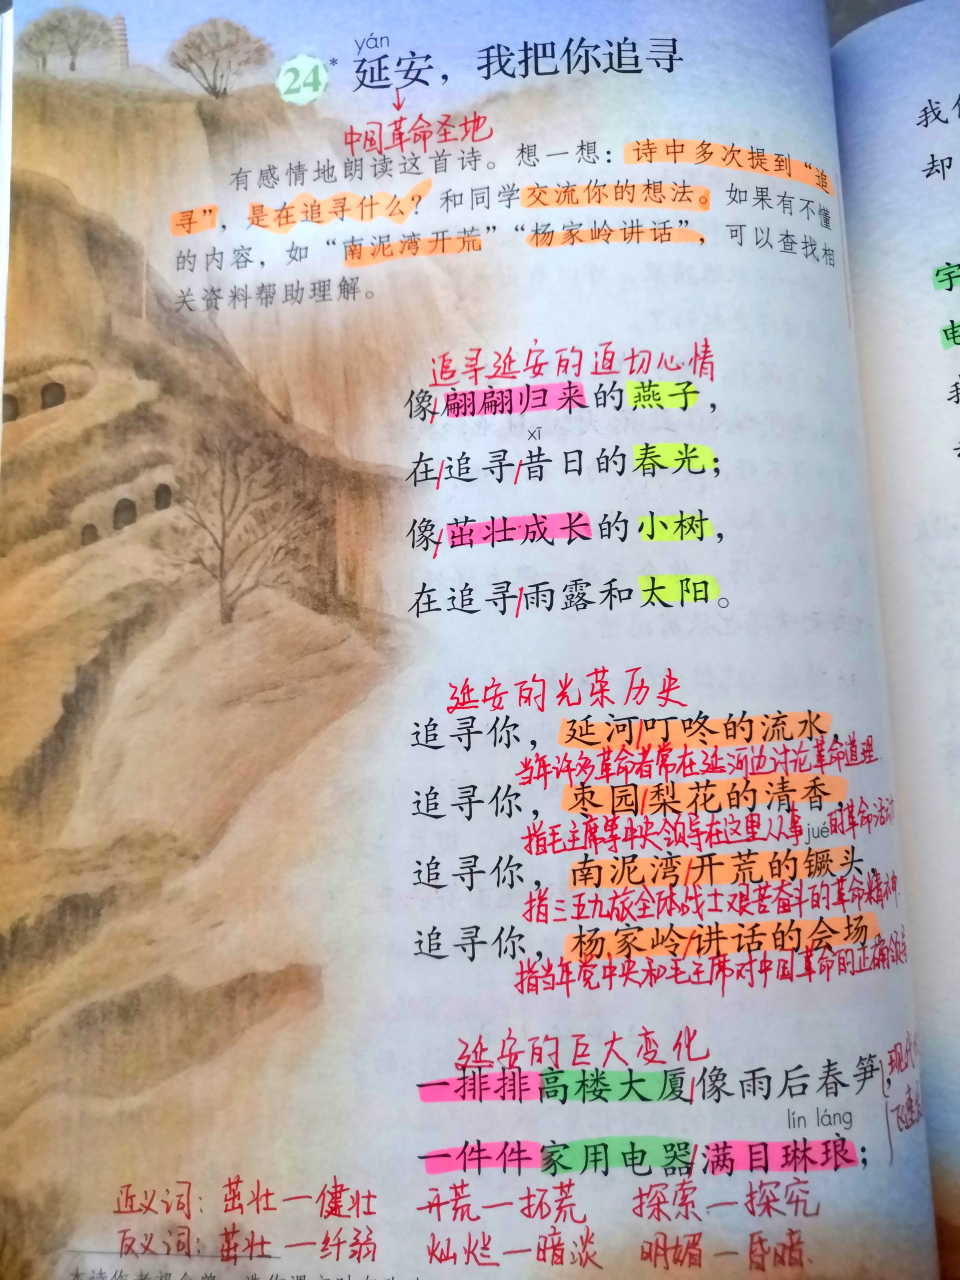 yán
24* 延安，我把你追寻
中国革命圣地
有感情地朗读这首诗。想一想：诗中多次提到“追
寻”，是在追寻什么？和同学交流你的想法。如果有不懂
的内容，如“南泥湾开荒”“杨家岭讲话”，可以查找相
关资料帮助理解。
追寻延安的迫切心情
像翩翩归来的燕子，
xī
在追寻昔日的春光；
像茁壮成长的小树，
在追寻雨露和太阳。
延安的光荣历史
追寻你，延河叮咚的流水，
当年许多革命者常在延河边讨论革命道理
追寻你，枣园梨花的清香，
指毛主席等中央领导在这里从事的革命活动
jué
追寻你，南泥湾开荒的镢头，
指三五九旅全体战士艰苦奋斗的革命精神
追寻你，杨家岭讲话的会场。
指当年党中央和毛主席对中国革命的正确领导
延安的巨大变化
一排排高楼大厦像雨后春笋，
现代
lín láng
一件件家用电器满目琳琅；
近义词：茁壮—健壮 开荒—拓荒 探索—探究
反义词：茁壮—纤弱 灿烂—暗淡 明媚—昏暗
我
却
宇
电
我